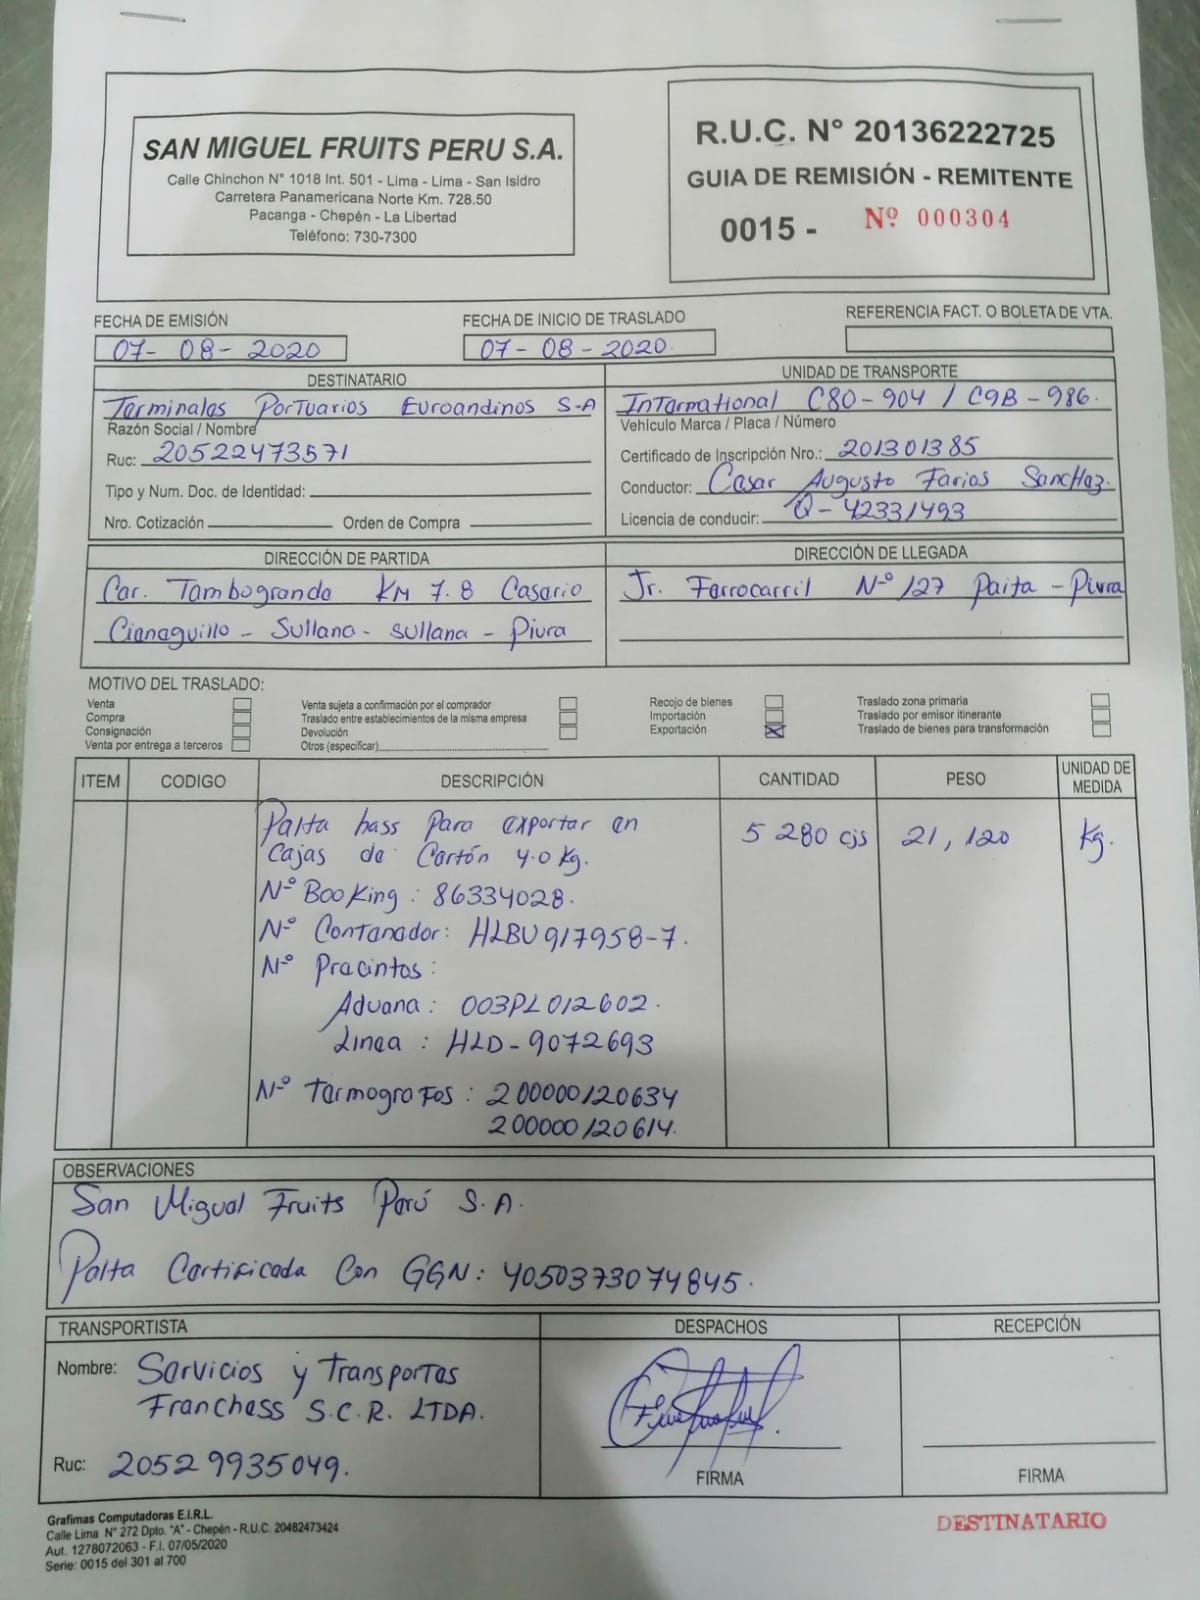 SAN MIGUEL FRUITS PERU S.A.
Calle Chinchon N° 1018 Int. 501 - Lima - Lima - San Isidro
Carretera Panamericana Norte Km. 728.50
Pacanga - Chepén - La Libertad
Teléfono: 730-7300
R.U.C. N° 20136222725
GUIA DE REMISIÓN - REMITENTE
0015 - Nº 000304
FECHA DE EMISIÓN
07- 08 - 2020
FECHA DE INICIO DE TRASLADO
07 - 08 - 2020.
REFERENCIA FACT. O BOLETA DE VTA.
DESTINATARIO
Terminales Portuarios Euroandinos S-A
Razón Social / Nombre
Ruc: 20522473571
Tipo y Num. Doc. de Identidad:
Nro. Cotización Orden de Compra
UNIDAD DE TRANSPORTE
International C80-904 / C9B-986.
Vehículo Marca / Placa / Número
Certificado de Inscripción Nro.: 201301385
Conductor: Cesar Augusto Farias Sanchez.
Licencia de conducir: Q-42331493
DIRECCIÓN DE PARTIDA
Car. Tambogrande KM 7.8 Caserio
Cieneguillo - Sullana - sullana - Piura
DIRECCIÓN DE LLEGADA
Jr. Ferrocarril Nº 127 Paita - Piura
MOTIVO DEL TRASLADO:
Venta
Compra
Consignación
Venta por entrega a terceros
Venta sujeta a confirmación por el comprador
Traslado entre establecimientos de la misma empresa
Devolución
Otros (especificar)
Recojo de bienes
Importación
Exportación
Traslado zona primaria
Traslado por emisor itinerante
Traslado de bienes para transformación
ITEM CODIGO DESCRIPCIÓN CANTIDAD PESO UNIDAD DE MEDIDA
Palta hass Para exportar en 5 280 cjs 21,120 Kg.
Cajas de Cartón 4.0 Kg.
Nº Booking : 86334028.
Nº Contenedor: HLBU917958-7.
Nº Precintos :
Aduana : 003PL012602.
Linea : HLD-9072693
Nº Termografos : 200000120634
200000120614.
OBSERVACIONES
San Miguel Fruits Perú S.A.
Palta Certificada Con GGN: 4050373074845.
TRANSPORTISTA
Nombre: Servicios y Transportes
Franchess S.C.R. LTDA.
Ruc: 20529935049.
DESPACHOS
FIRMA
RECEPCIÓN
FIRMA
Grafimas Computadoras E.I.R.L.
Calle Lima N° 272 Dpto. "A" - Chepén - R.U.C. 20482473424
Aut. 1278072063 - F.I. 07/05/2020
Serie: 0015 del 301 al 700
DESTINATARIO